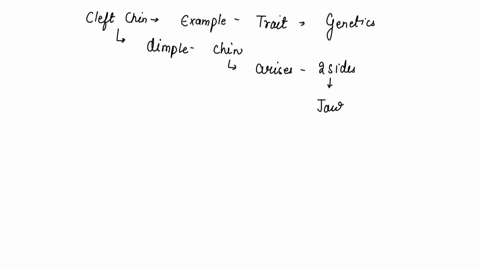 Cleft Chin → Example - Trait → Genetics
↳ dimple - chin
↳ arises - 2 sides
↓
Jaw